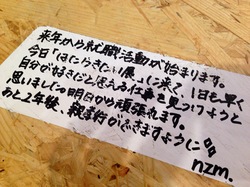 来年から就職活動が始まります。
今日「はたらきたい展」に来て、1日も早く
自分が好きだと思える仕事を見つけようと
思いました。明日から頑張れます。
あと2年後、親孝行ができますように。
nzm.